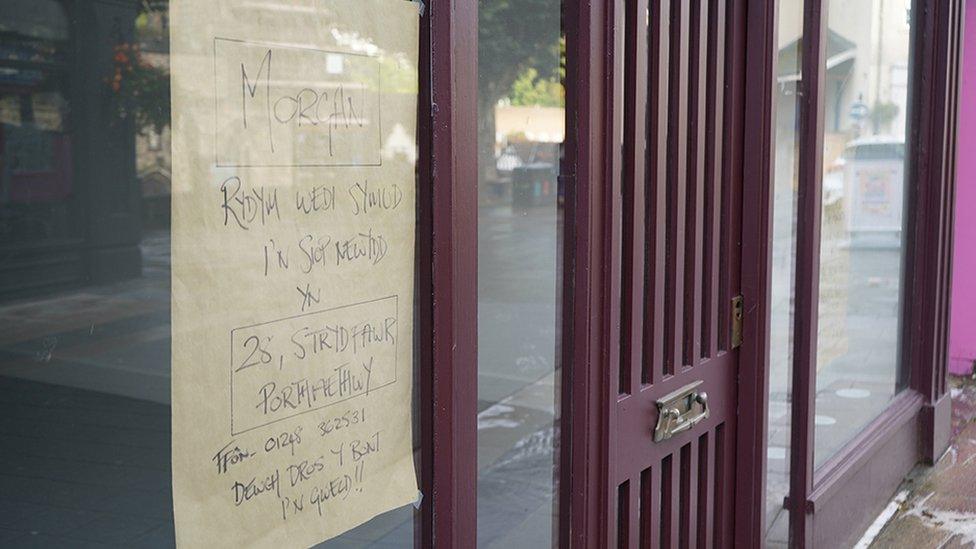 MORGAN
RYDYM WEDI SYMUD
I'N SIOP NEWYDD
YN
28, STRYD FAWR
PORTHAETHWY
FFÔN- 01248 362531
DEWCH DROS Y BONT
I'N GWELD!!